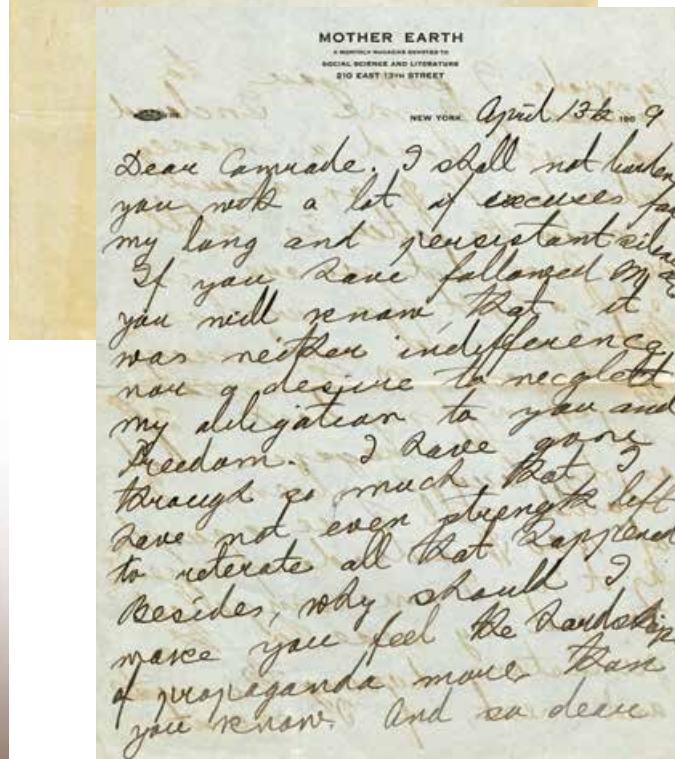 MOTHER EARTH
A MONTHLY MAGAZINE DEVOTED TO
SOCIAL SCIENCE AND LITERATURE
210 EAST 13TH STREET
NEW YORK April 13th 190 9
Dear Comrade. I shall not burden
you with a lot of excuses for
my long and persistant
If you have followed M
you will know that it
was neither indifference
nor a desire to necglett
my obligation to you and
Freedom. I have gone
through so much that I
have not even strength left
to reterate all that happened
Besides, why should I
make you feel the hardship
of propaganda more than
you know. And so dear